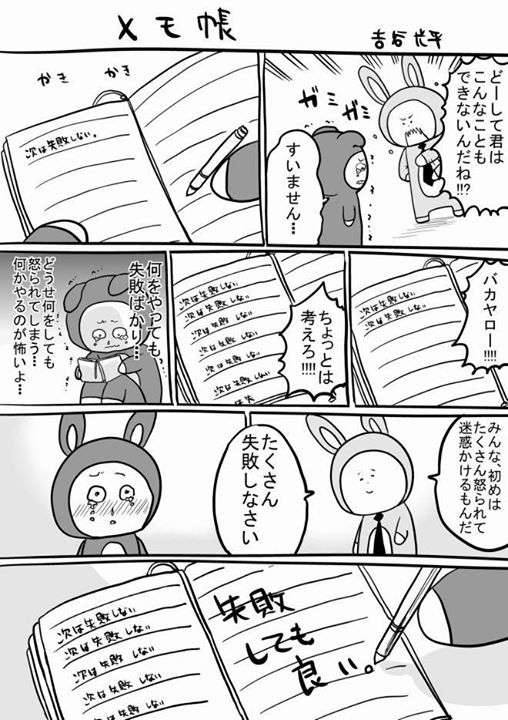 メモ帳
吉谷光平
どーして君は
こんなことも
できないんだね!!?
ガミガミ
すいません…
かき
かき
次は失敗しない。
バカヤロー!!!!
次は失敗しない
次は失敗しない
ちょっとは
考えろ!!!!
次は失敗しない
次は失敗しない
次は失敗しない
次は失敗しない
次は失敗しない
次は失敗し
何をやっても
失敗ばかり…
どうせ何をしても
怒られてしまう…
何かやるのが怖いよ…
みんな、初めは
たくさん怒られて
迷惑かけるもんだ
たくさん
失敗しなさい
次は失敗しない
次は失敗しない
次は失敗しない
次は失敗しない
次は失敗しない
失敗
しても
良い。